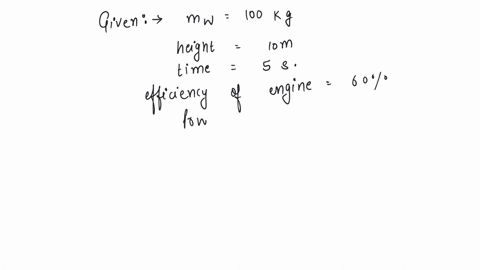 Given:→ mw = 100 Kg
height = 10m
time = 5 s.
efficiency of engine = 60%